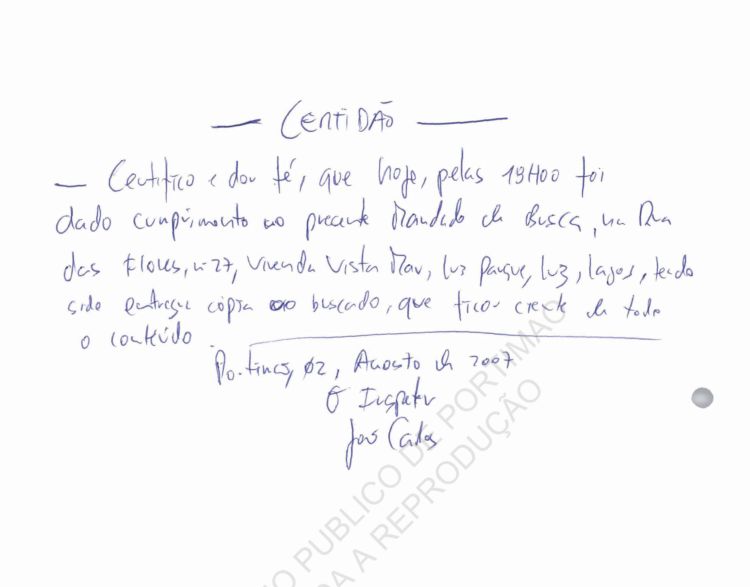 — CERTIDÃO —
— Certifico e dou fé, que hoje, pelas 19H00 foi
dado cumprimento ao presente Mandado de Busca, na Rua
das Flores, nº 27, Vivenda Vista Mar, Luz Parque, Luz, Lagos, tendo
sido entregue cópia ao buscado, que ficou ciente de todo
o conteúdo.
Portimão, 02, Agosto de 2007
O Inspector
José Carlos
O PUBLICO DE PORTIMAO
DA A REPRODUÇÃO